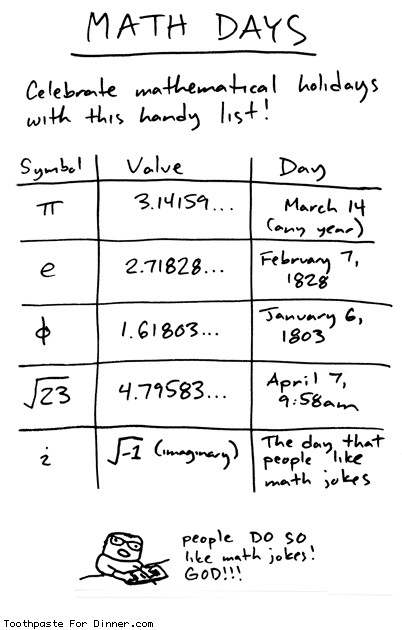 MATH DAYS
Celebrate mathematical holidays
with this handy list!
Symbol Value Day
π 3.14159... March 14
(any year)
e 2.71828... February 7,
1828
ϕ 1.61803... January 6,
1803
√23 4.79583... April 7,
9:58am
i √-1 (imaginary) The day that
people like
math jokes
people DO SO
like math jokes!
GOD!!!
Toothpaste For Dinner.com